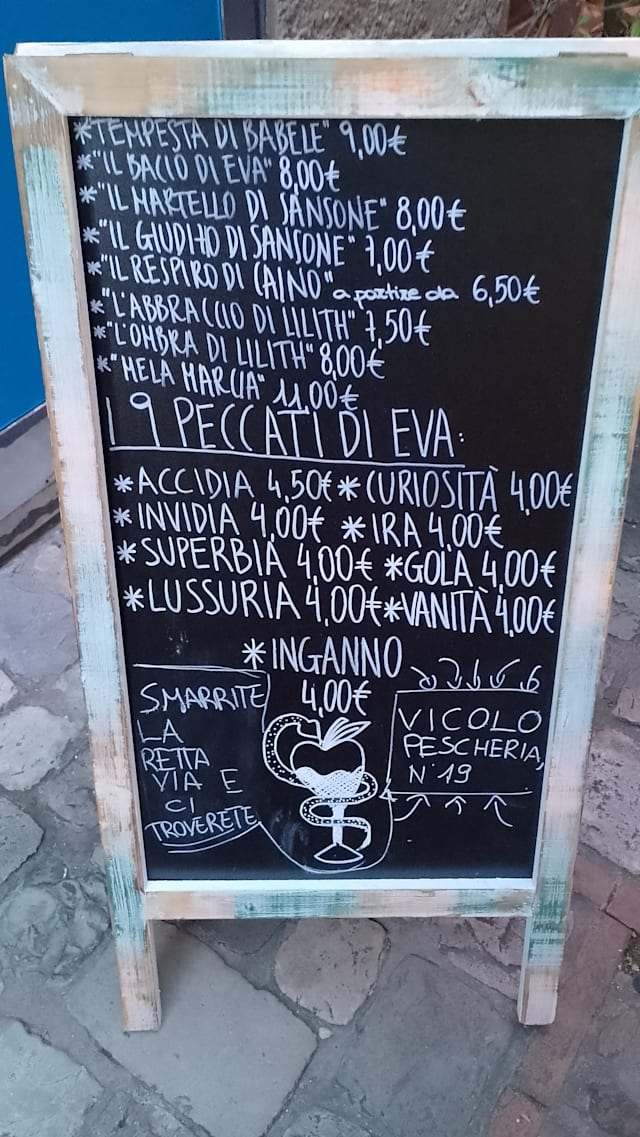 *"TEMPESTA DI BABELE" 9,00€
*"IL BACIO DI EVA" 8,00€
*"IL MARTELLO DI SANSONE" 8,00€
*"IL GIUDIHO DI SANSONE" 7,00€
*"IL RESPIRO DI CAINO" a partire da 6,50€
*"L'ABBRACCIO DI LILITH" 7,50€
*"L'OMBRA DI LILITH" 8,00€
*"MELA MARCIA" 11,00€
I 9 PECCATI DI EVA:
*ACCIDIA 4,50€ *CURIOSITÀ 4,00€
*INVIDIA 4,00€ *IRA 4,00€
*SUPERBIA 4,00€ *GOLA 4,00€
*LUSSURIA 4,00€ *VANITÀ 4,00€
*INGANNO
4,00€
SMARRITE
LA
RETTA
VIA E
CI
TROVERETE
VICOLO
PESCHERIA,
N°19